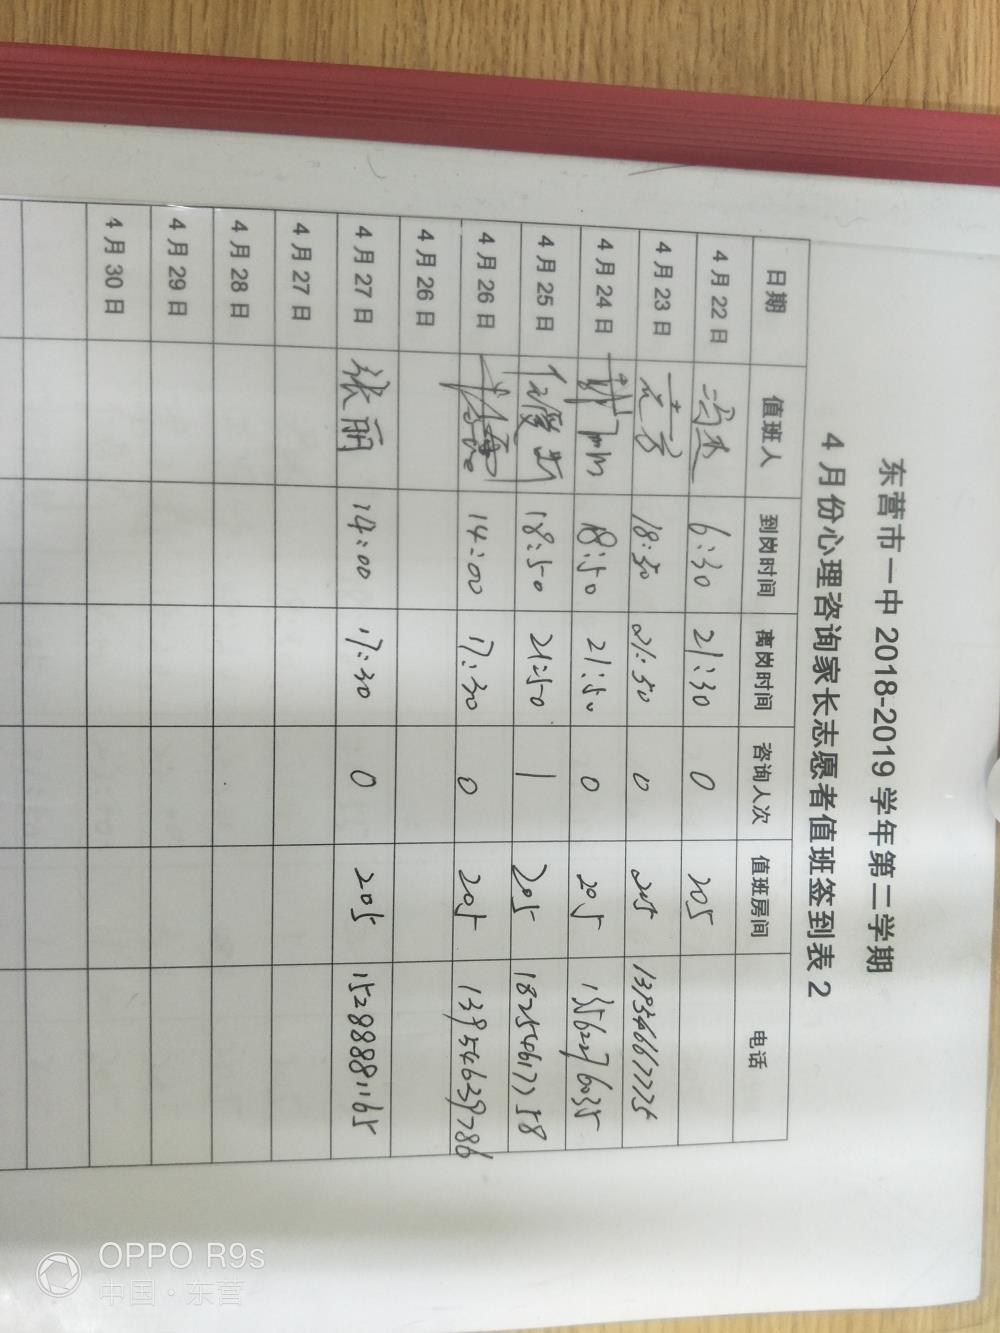 东营市一中 2018-2019 学年第二学期
4 月份心理咨询家长志愿者值班签到表 2
日期 值班人 到岗时间 离岗时间 咨询人次 值班房间 电话
4 月 22 日 6:30 21:30 0 205
4 月 23 日 18:50 21:50 0 205
4 月 24 日 18:50 21:50 0 205 13562276035
4 月 25 日 18:50 21:50 1 205 18254617758
4 月 26 日 14:00 17:30 0 205 13954639786
4 月 26 日
4 月 27 日 张丽 14:00 17:30 0 205 15288881165
4 月 27 日
4 月 28 日
4 月 29 日
4 月 30 日
OPPO R9s
中国·东营